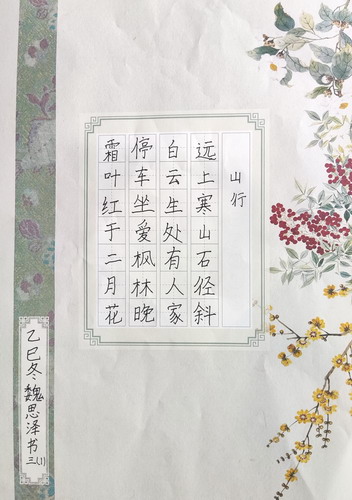 山行
远上寒山石径斜
白云生处有人家
停车坐爱枫林晚
霜叶红于二月花
乙巳冬魏思泽书三(1)